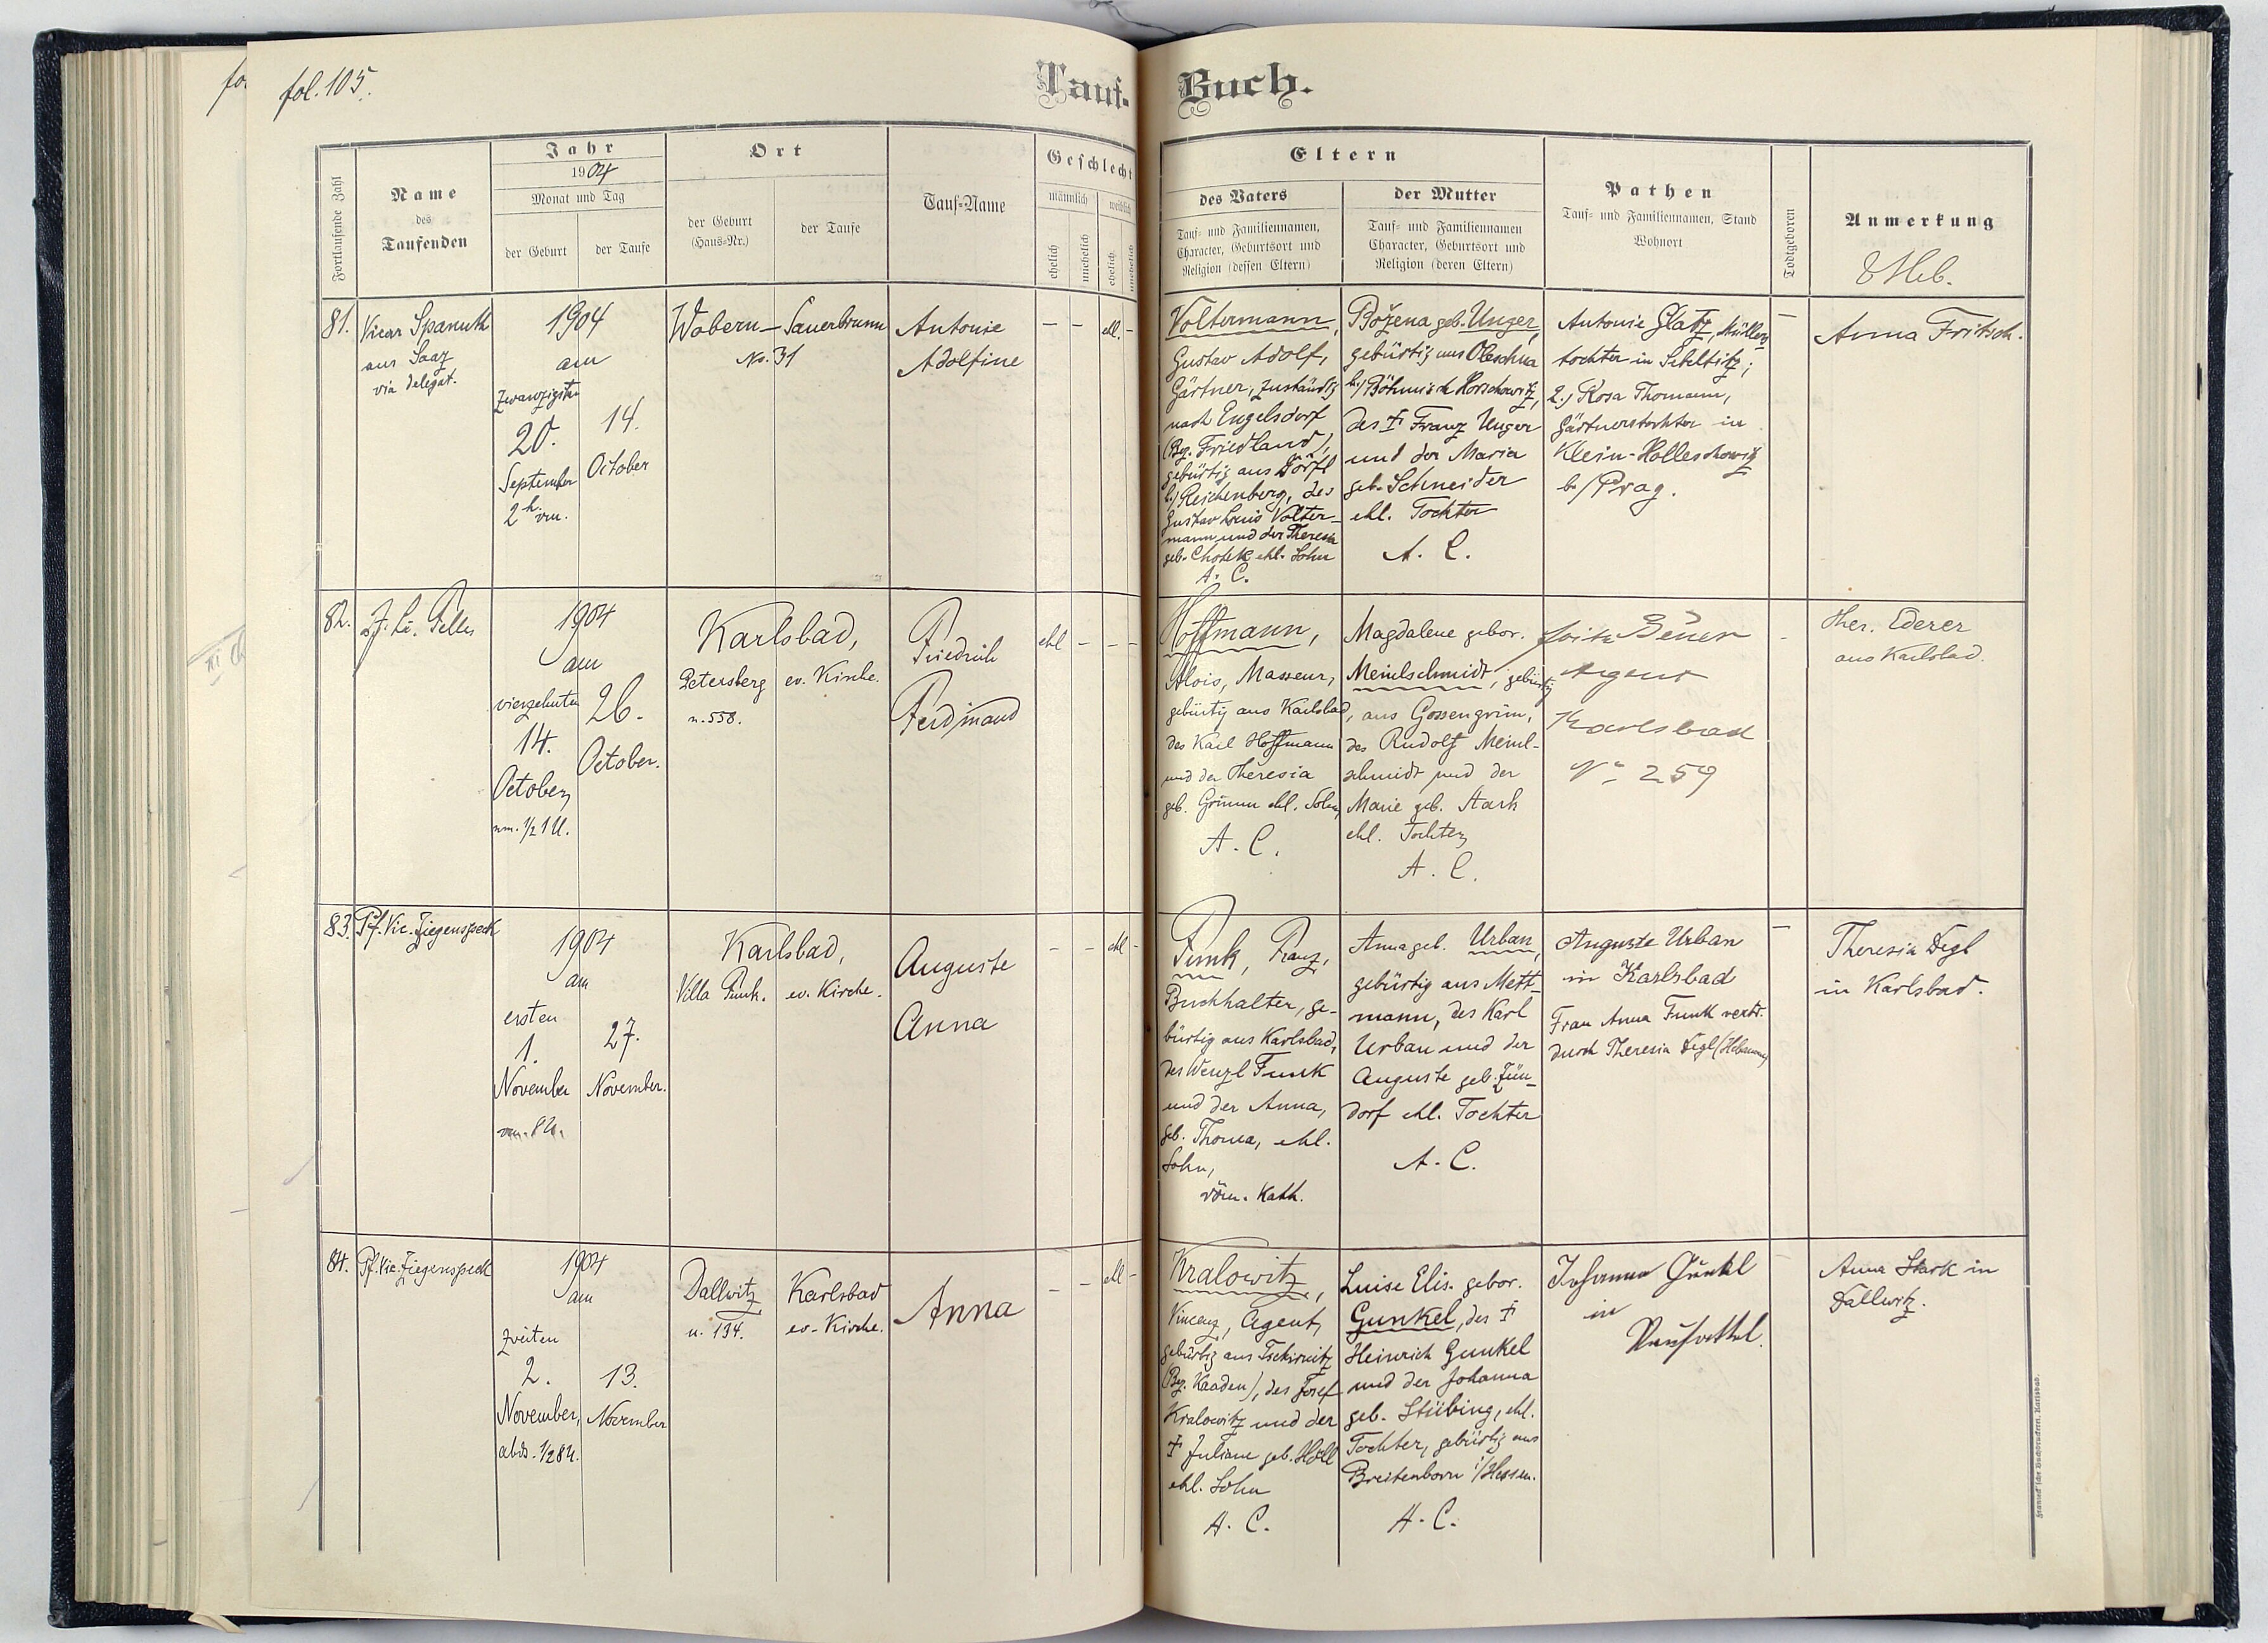 fol. 105.
Tauf-Buch.
Fortlaufende Zahl
Name
des
Taufenden
Jahr
1904
Monat und Tag
der Geburt
der Taufe
Ort
der Geburt
(Haus-Nr.)
der Taufe
Tauf-Name
Geschlecht
männlich
weiblich
ehelich
unehelich
ehelich
unehelich
Eltern
des Vaters
Tauf- und Familiennamen,
Character, Geburtsort und
Religion (dessen Eltern)
der Mutter
Tauf- und Familiennamen
Character, Geburtsort und
Religion (deren Eltern)
Pathen
Tauf- und Familiennamen, Stand
Wohnort
Todtgeboren
Anmerkung
Heb.
81.
Vicar Spanuth
aus Saaz
via delegat.
1904
am
zwanzigsten
20.
September
2 h. vm.
14.
October
Wobern-Sauerbrunn
No. 31
Antonie
Adolfine
– – ehl. –
Voltermann,
Gustav Adolf,
Gärtner, zuständig
nach Engelsdorf
(Bez. Friedland),
gebürtig aus Dörfl
b./Reichenberg, des
Gustav Louis Volter-
mann und der Theresia
geb. Chotek ehl. Sohn
A. C.
Božena geb. Unger,
gebürtig aus Oleschna
b./Böhmisch Horschowitz,
des † Franz Unger
und der Maria
geb. Schneider
ehl. Tochter
A. C.
Antonie Glatz, Müllers
tochter in
2.) Rosa Thomann,
Gärtnerstochter in
Klein-Holleschowitz
b./Prag.
–
Anna Fritsch.
82.
1904
am
vierzehnten
14.
October,
nm. 1/2 1 U.
26.
October.
Karlsbad,
Petersberg
n. 558.
ev. Kirche.
Friedrich
Ferdinand
ehl – – –
Hoffmann,
Alois, Masseur,
gebürtig aus Karlsbad,
des Karl Hoffmann
und der Theresia
geb. Grimm ehl. Sohn,
A. C.
Magdalene gebor.
Meinlschmidt, gebürtig
aus Gossengrün,
des Rudolf Meinl-
schmidt und der
Marie geb. Stark
ehl. Tochter,
A. C.
Agent
Karlsbad
No 259
-
Ther. Ederer
aus Karlsbad.
83.
Pf. Vic. Ziegenspeck
1904
am
ersten
1.
November
vm. 8 U.
27.
November.
Karlsbad,
Villa Funk.
ev. Kirche.
Auguste
Anna
– – ehl –
Funk, Franz,
Buchhalter, ge-
bürtig aus Karlsbad,
des Wenzl Funk
und der Anna,
geb. Thoma, ehl.
Sohn,
röm. Kath.
Anna geb. Urban,
gebürtig aus Mett-
mann, des Karl
Urban und der
Auguste geb. Zün-
dorf ehl. Tochter
A. C.
Auguste Urban
in Karlsbad
Frau Anna Funk vertr.
durch Theresia Degl (Hebamme)
–
Theresia Degl
in Karlsbad.
84.
Pf. Vic. Ziegenspeck
1904
am
zweiten
2.
November,
abds. 1/2 8 U.
13.
November
Dallwitz
n. 134.
Karlsbad
ev. Kirche.
Anna
– – ehl –
Kralowitz,
Vincenz, Agent,
gebürtig aus Tschirnitz
(Bez. Kaaden), des Josef
Kralowitz und der
† Juliane geb. Höll
ehl. Sohn
A. C.
Luise Elis. gebor.
Gunkel, des †
Heinrich Gunkel
und der Johanna
geb. Stübing, ehl.
Tochter, gebürtig aus
Breitenborn i/Hessen.
A. C.
Johanna Gunkl
in
Neusattel.
Anna Stark in
Dallwitz.